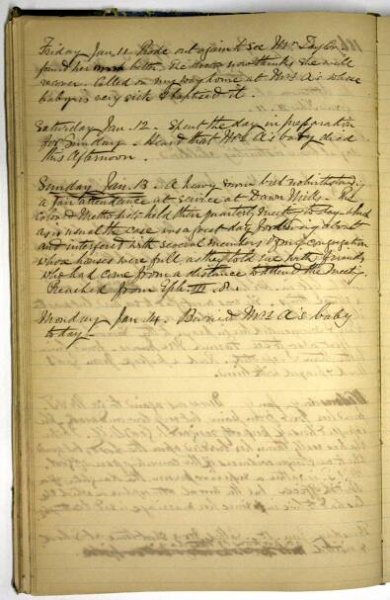 Friday Jan 11 Rode out again to see Mrs Taylor
found her much better. The Doctor now thinks she will
recover. Called on my way home at Mrs A's whose
baby is very sick & baptized it.
Saturday Jan. 12. Spent the day in preparation
for Sunday - Heard that Mrs A's baby died
this Afternoon.
Sunday Jan. 13. A heavy snow but notwithstanding
a fair attendance at service at Dawn Mills. The
colored Methodists held their quarterly meeting to-day which
as is usual the case was a great day for driving about
and interfered with several members of my congregation
whose houses were full as they told me with friends
who had come from a distance to attend the meeting.
Preached from Eph III. 8.
Monday Jan 14. Buried Mrs A's baby
to day -